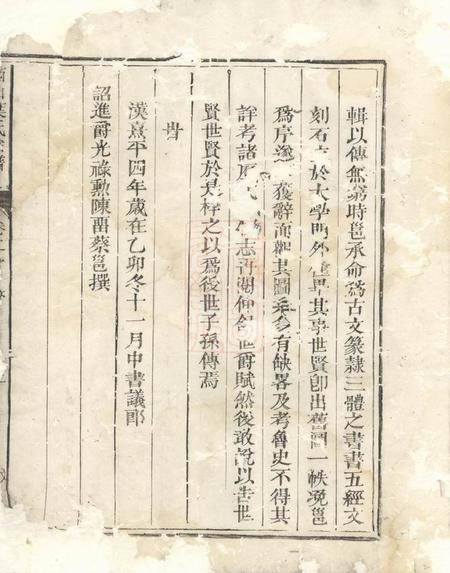 輯以傳無窮時邕承命為古文篆隷三體之書書五經文
刻石於大學門外畢其事世賢卽出舊圖一帙浼邕
為序遂獲辭而觀其圖系多有缺畧及考魯史不得其
詳考諸志再湖仰世爵賦然後敢說以告世
賢世賢於是梓之以為後世子孫傳焉
旹
漢熹平四年歲在乙卯冬十一月中書議郎
詔進爵光祿勲陳畱蔡邕撰